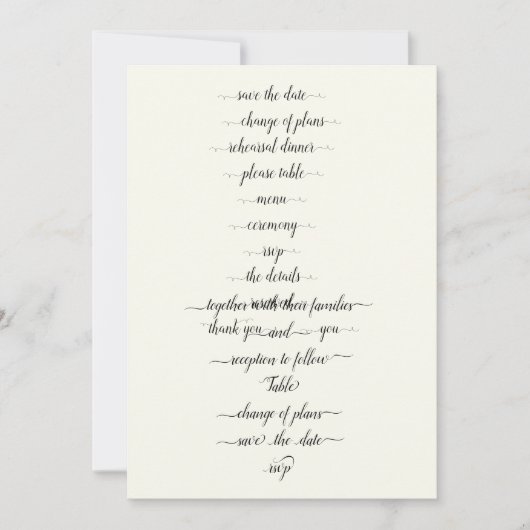 save the date
change of plans
rehearsal dinner
please table
menu
ceremony
rsvp
the details
together with their families
thank you and you
reception to follow
Table
change of plans
save the date
rsvp